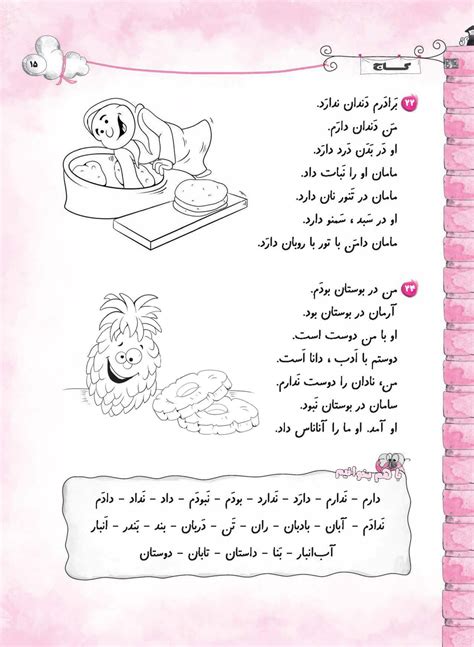 ۱۵
کاج
۲۳ بَرادَرم دَندان نَدارَد.
مَن دَندان دارَم.
او دَر بَدَن دَرد دارَد.
مامان او را نَبات داد.
مامان در تَنور نان دارد.
او در سَبد ، سَمنو دارد.
مامان دامَن با تور با روبان دارَد.
۲۴ من در بوستان بودَم.
آرمان در بوستان بود.
او با من دوست است.
دوستم با اَدب ، دانا اَست.
من، نادان را دوست نَدارم.
سامان در بوستان نَبود.
او آمد. او ما را آناناس داد.
با هم بخوانیم
دارم – نَدارم – دارَد – نَدارد – بودَم – نَبودَم – داد – نَداد – دادَم
نَدادَم – آبان – بادبان – ران – تَن – دَربان – بند – بَندر – اَنبار
آب‌انبار – بَنا – داستان – تابان – دوستان